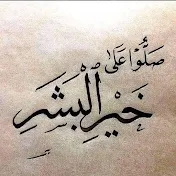 صَلُّوا عَلَىٰ
خَيْرِ ٱلْبَشَرِ